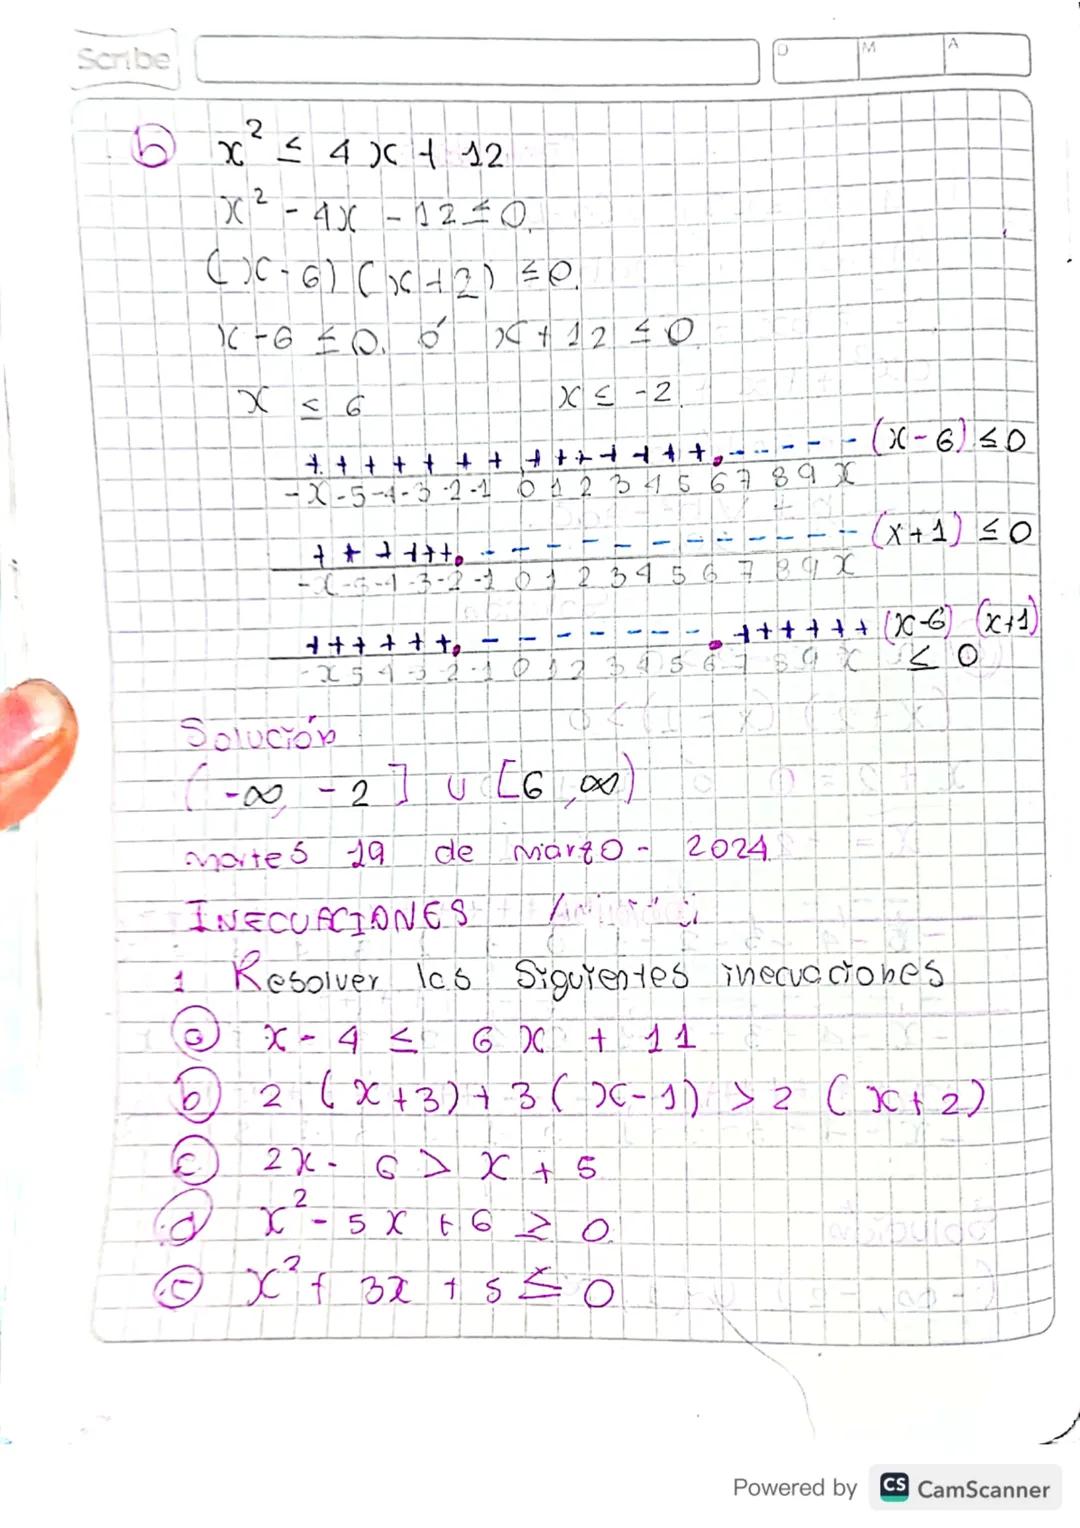 Scribe
D M A
b x² ≤ 4x + 12
x² - 4x - 12 ≤ 0.
(x-6) (x+2) ≤ 0.
x-6 ≤ 0. ó x + 12 ≤ 0
x ≤ 6 x ≤ -2.
+ + + + + + + + + + + + + + . - - - - - - (x-6) ≤ 0
-x -5 -4 -3 -2 -1 0 1 2 3 4 5 6 7 8 9 x
+ + + + + + . - - - - - - - - - - - - (x+1) ≤ 0
-x -5 -4 -3 -2 -1 0 1 2 3 4 5 6 7 8 9 x
+ + + + + + . - - - - - - - . + + + + + + (x-6) (x+1)
-x 5 -4 -3 -2 -1 0 1 2 3 4 5 6 7 8 9 x ≤ 0
Solución
(-∞, -2] ∪ [6, ∞)
martes 19 de marzo - 2024.
INECUACIONES
1 Resolver las siguientes inecuaciones
a x - 4 ≤ 6x + 11
b 2 (x+3) + 3 (x-1) > 2 (x+2)
c 2x - 6 > x + 5
d x² - 5x + 6 ≥ 0.
e x² + 3x + 5 ≤ 0
Powered by CS CamScanner